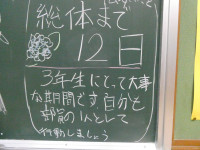 総体まで
12日
3年生にとって大事
な期間です。自分も
部の1人として
行動しましょう